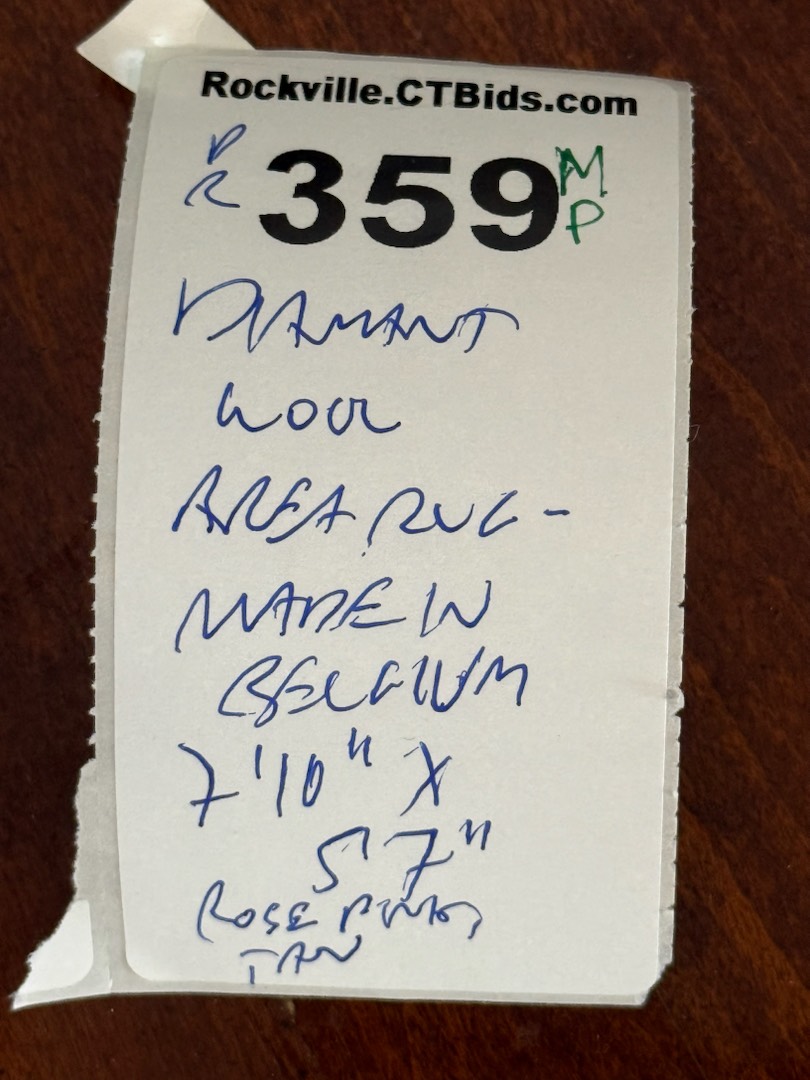 Rockville.CTBids.com
DR 359 MP
DIAMANT
WOOL
AREA RUG -
MADE IN
BELGIUM
7'10" X
5'7"
ROSE PINK,
TAN